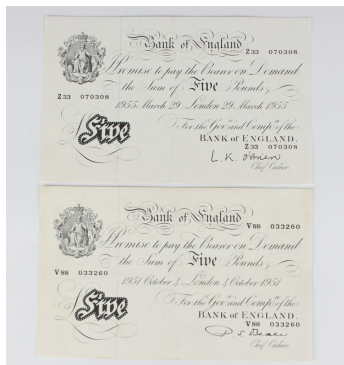 Bank of England
Z33 070308
Promise to pay the Bearer on Demand
the Sum of Five Pounds
Z33 070308
1955 March 29 London 29 March 1955
For the Govr. and Compa. of the
BANK OF ENGLAND.
Z33 070308
Five
L. K. O'Brien
Chief Cashier
Bank of England
V88 033260
Promise to pay the Bearer on Demand
the Sum of Five Pounds
V88 033260
1951 October 4 London 4 October 1951
For the Govr. and Compa. of the
BANK OF ENGLAND.
V88 033260
Five
P. S. Beale
Chief Cashier